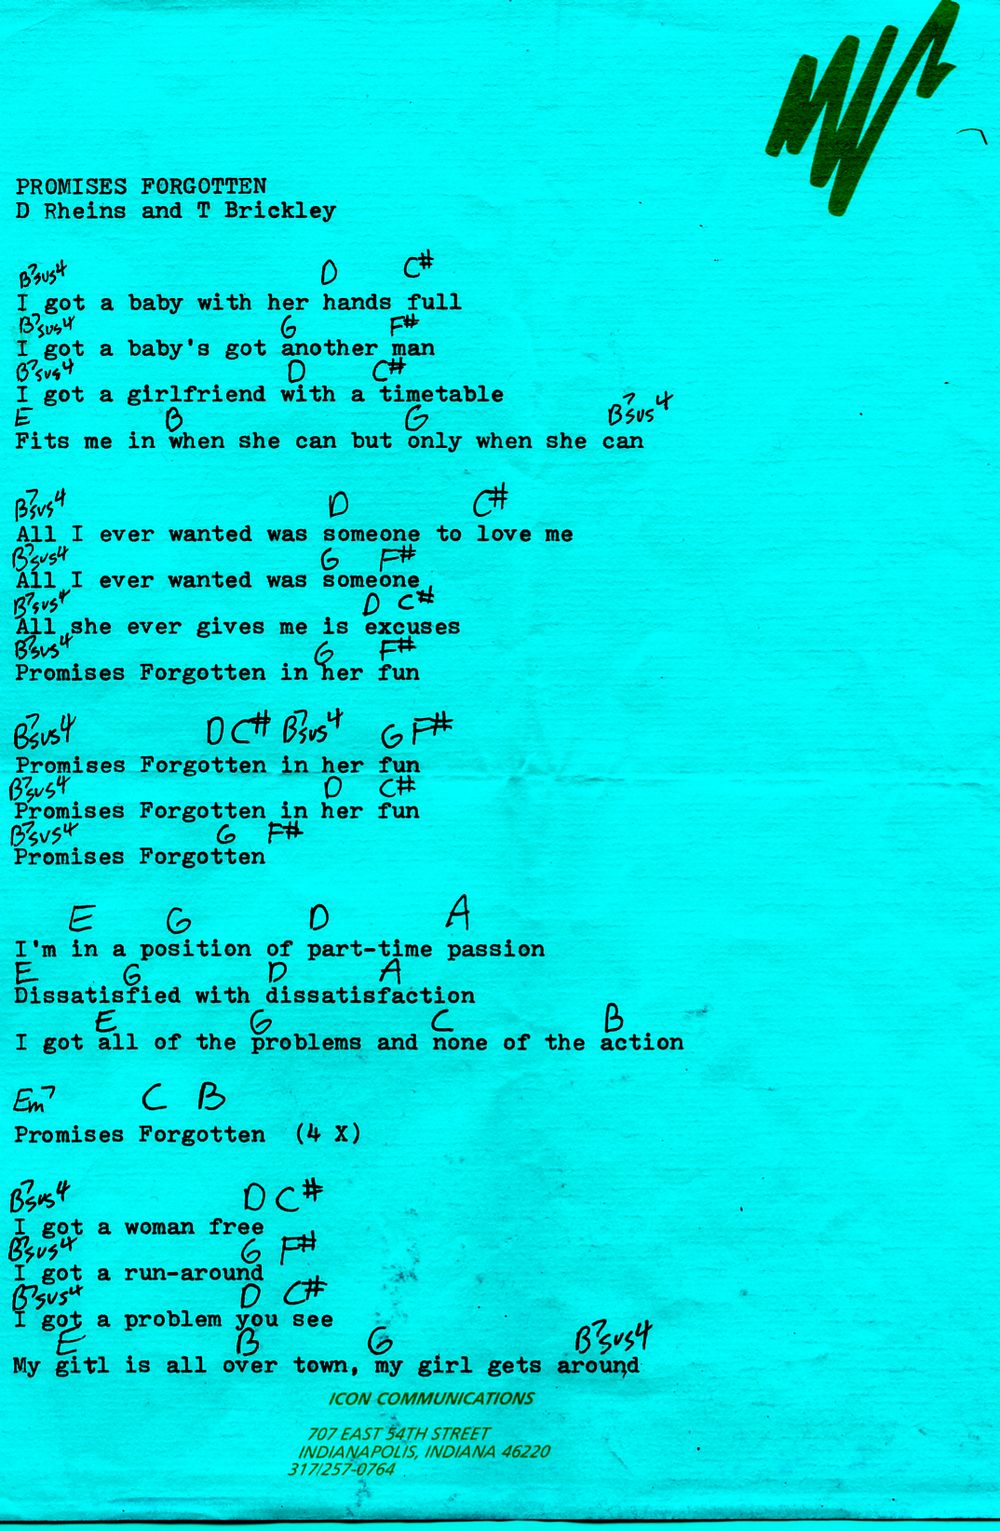 PROMISES FORGOTTEN
D Rheins and T Brickley
B7sus4 D C#
I got a baby with her hands full
B7sus4 G F#
I got a baby's got another man
B7sus4 D C#
I got a girlfriend with a timetable
E B G B7sus4
Fits me in when she can but only when she can
B7sus4 D C#
All I ever wanted was someone to love me
B7sus4 G F#
All I ever wanted was someone
B7sus4 D C#
All she ever gives me is excuses
B7sus4 G F#
Promises Forgotten in her fun
B7sus4 D C# B7sus4 G F#
Promises Forgotten in her fun
B7sus4 D C#
Promises Forgotten in her fun
B7sus4 G F#
Promises Forgotten
E G D A
I'm in a position of part-time passion
E G D A
Dissatisfied with dissatisfaction
E G C B
I got all of the problems and none of the action
Em7 C B
Promises Forgotten (4 X)
B7sus4 D C#
I got a woman free
B7sus4 G F#
I got a run-around
B7sus4 D C#
I got a problem you see
E B G B7sus4
My gitl is all over town, my girl gets around
ICON COMMUNICATIONS
707 EAST 54TH STREET
INDIANAPOLIS, INDIANA 46220
317/257-0764